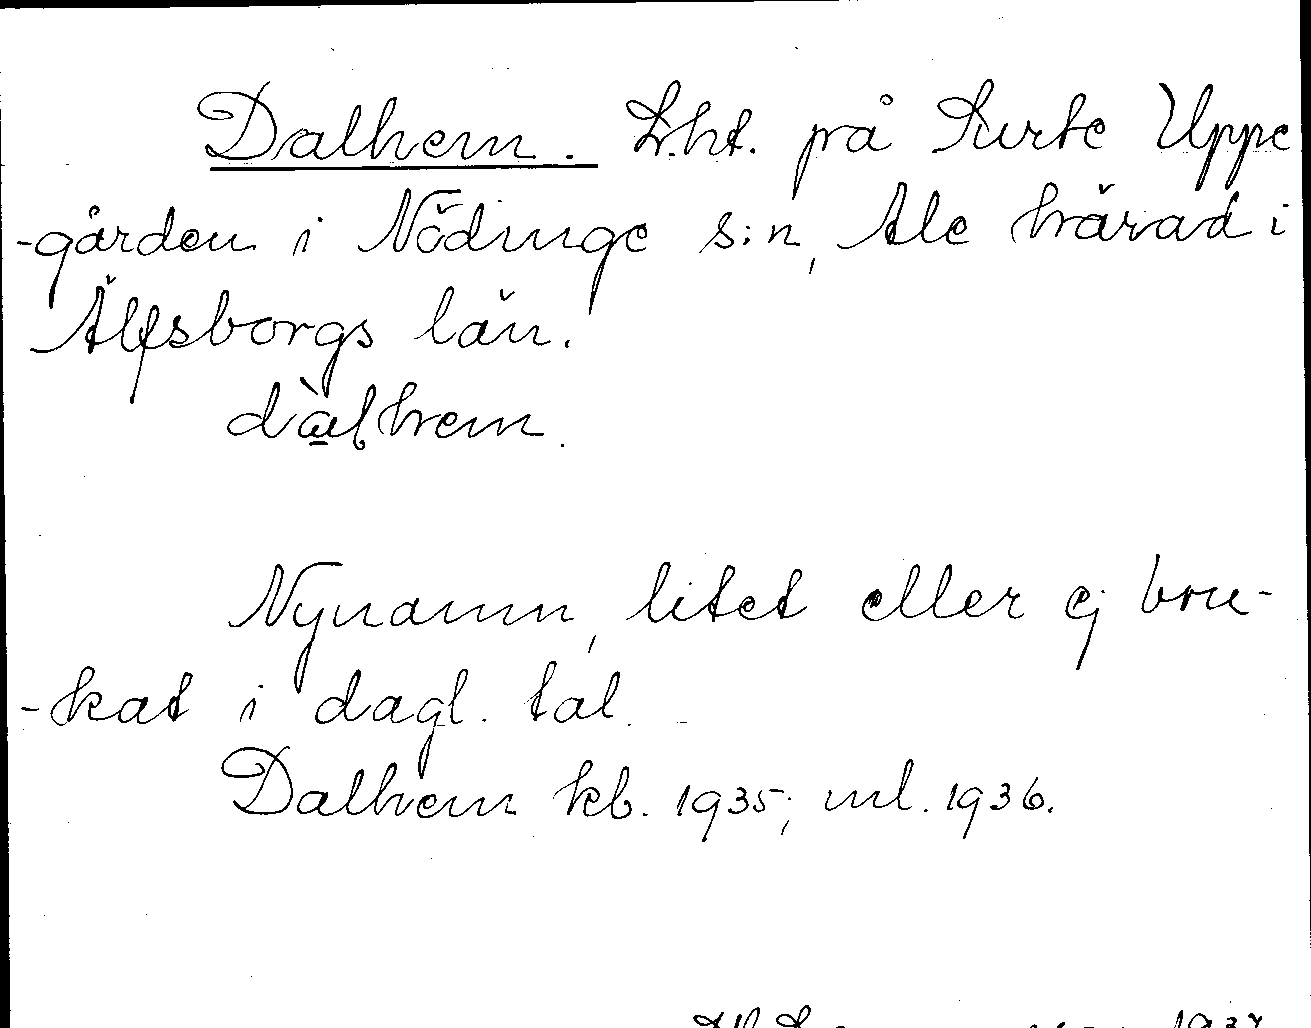 Dalhem. Lht. på Surte Uppe
-gården i Nödinge s:n, Ale härad i
Älfsborgs län.
dàlhem.
Nynamn, litet eller ej bru-
-kat i dagl. tal.
Dalhem kb. 1935; ml. 1936.
1937